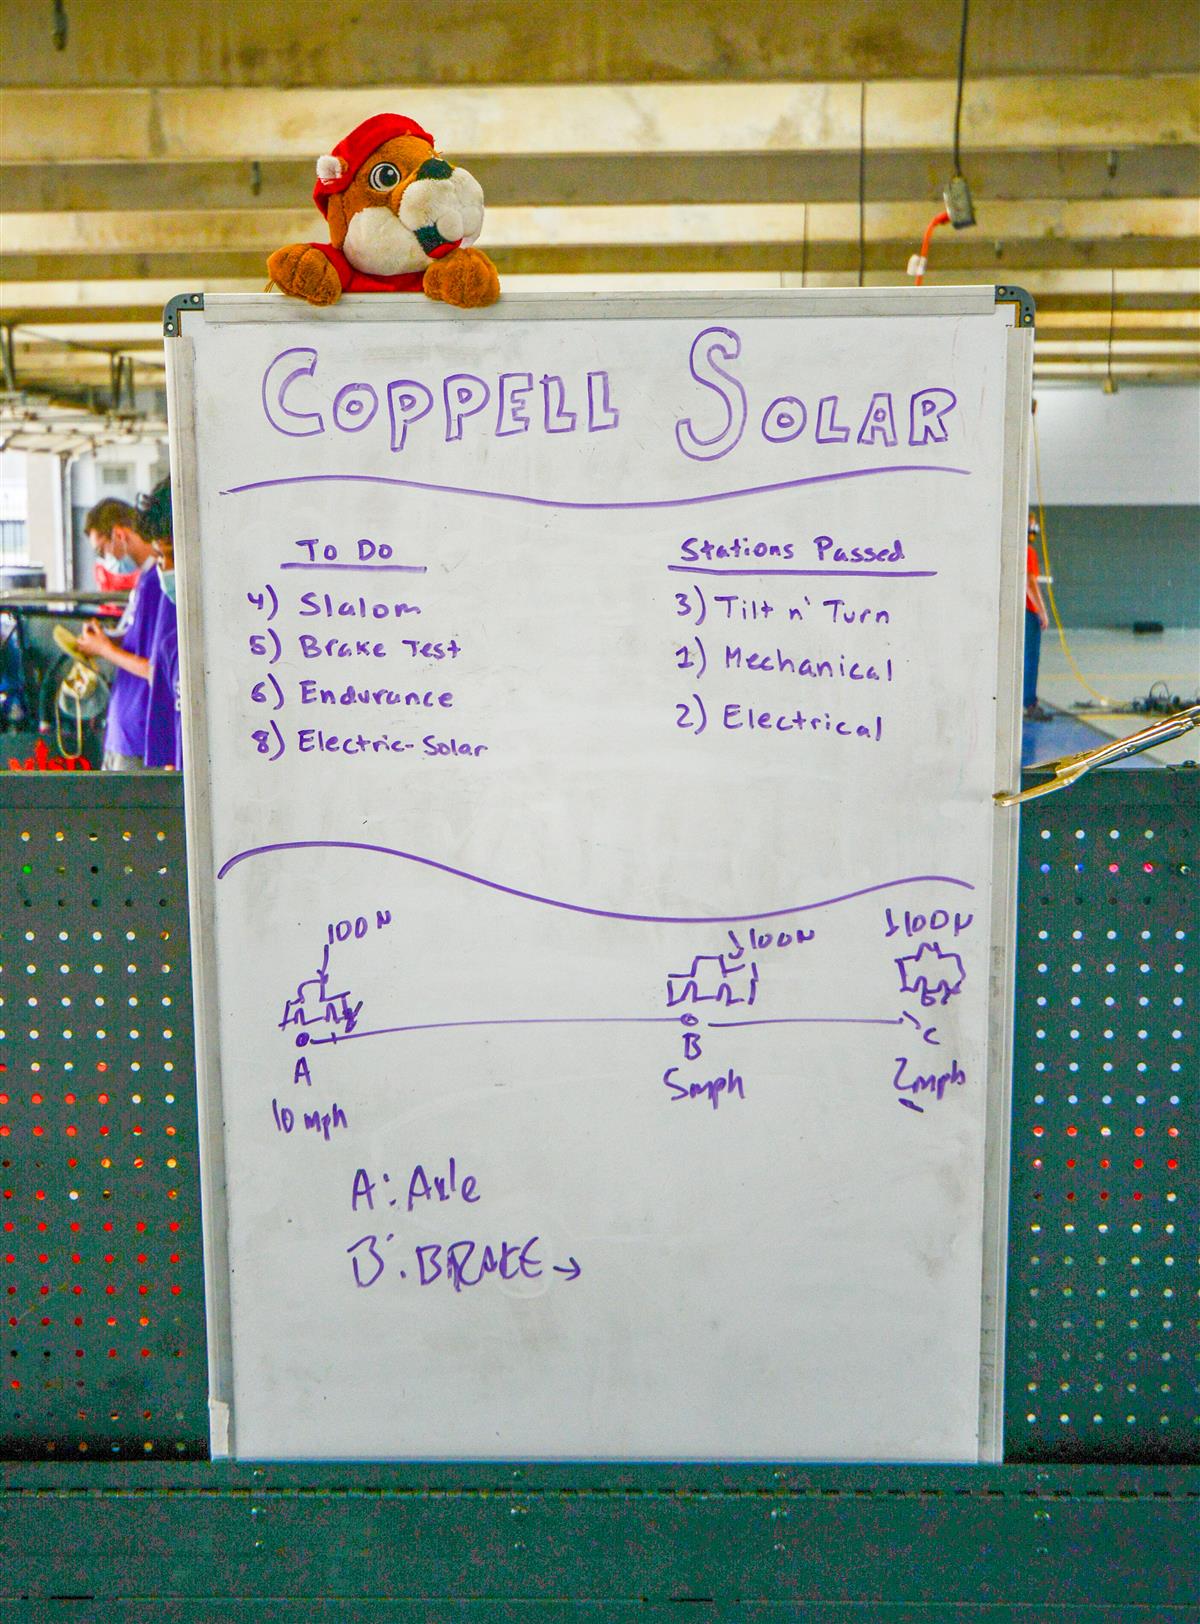 COPPELL SOLAR
To Do
4) Slalom
5) Brake Test
6) Endurance
8) Electric-Solar
Stations Passed
3) Tilt n' Turn
1) Mechanical
2) Electrical
100N
100N
100N
A
B
C
10 mph
5mph
2mph
A: Axle
B: BRAKE →